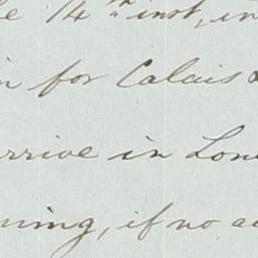 14th inst, in
for Calais
arrive in Lon
ning, if no